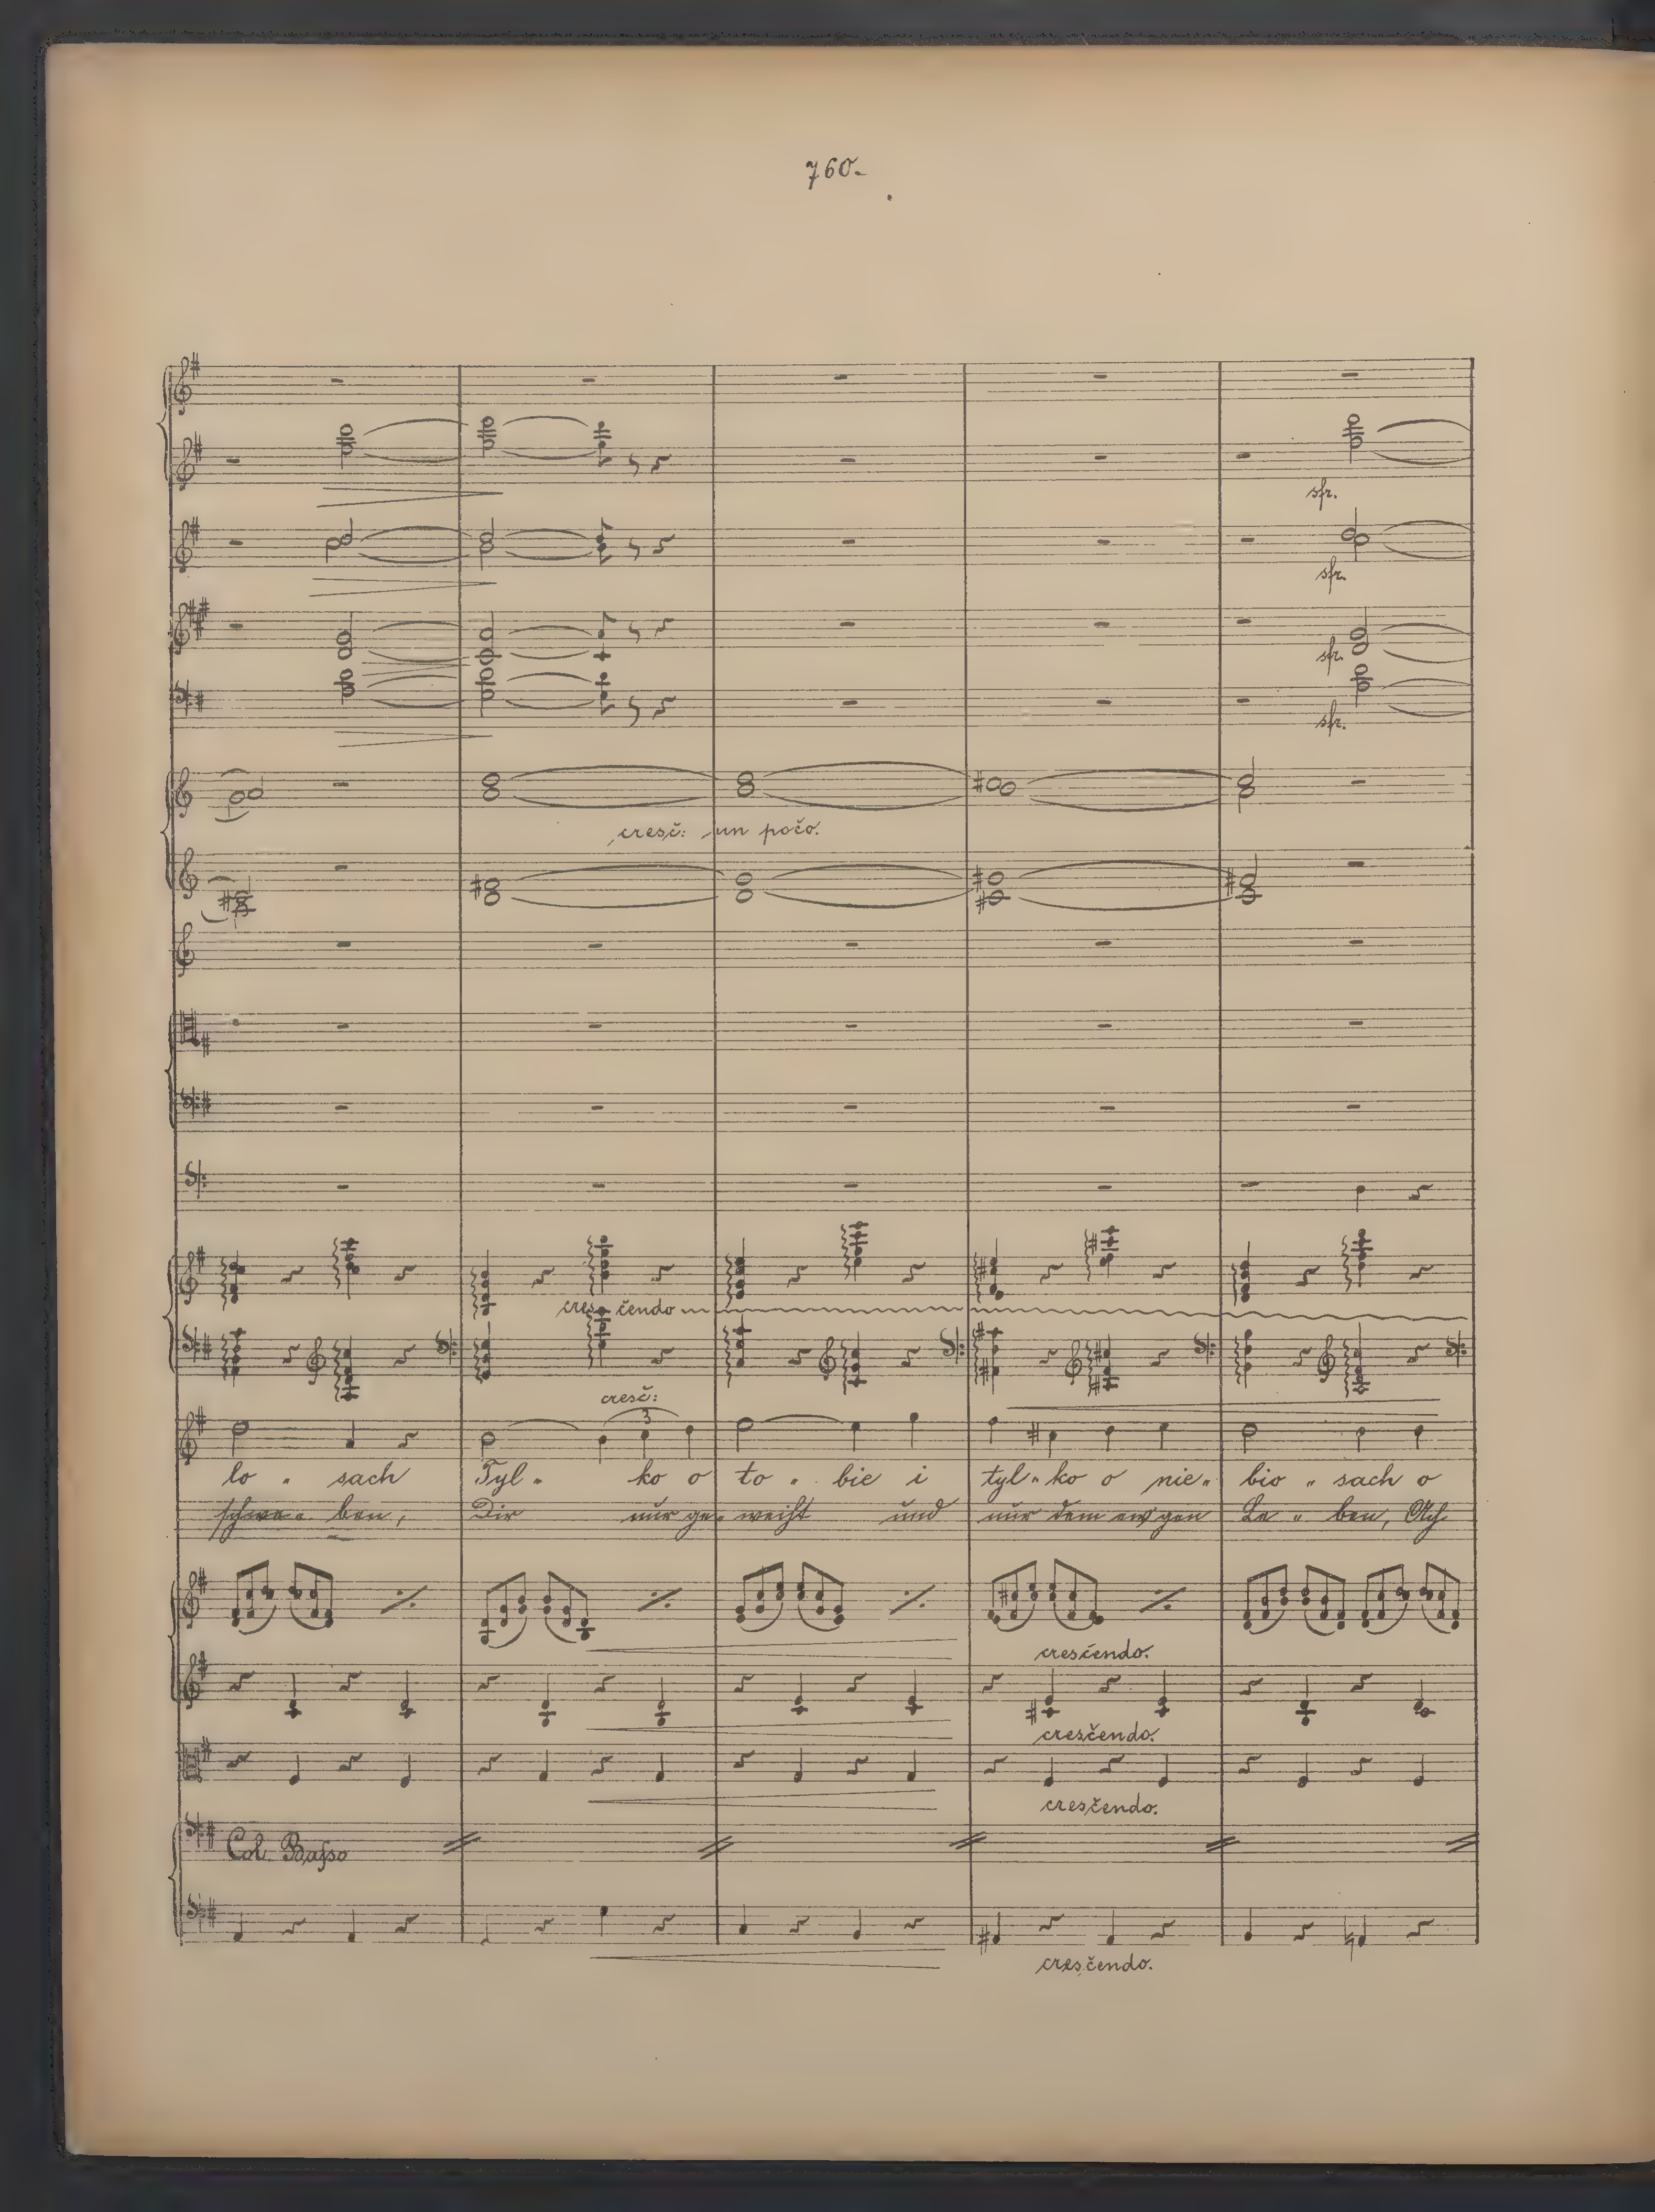 760.
sfr.
sfr.
sfr.
sfr.
cresč: un počo.
cres čendo
cresč:
3
lo - sach Tyl - ko o to - bie i tyl - ko o nie - bio - sach o
schwe - ben, Dir nŭr ge - weiht ŭnd nŭr dem ew'gen Le - ben, Ach
cresčendo.
cresčendo.
cresčendo.
Col. Baſso
cresčendo.